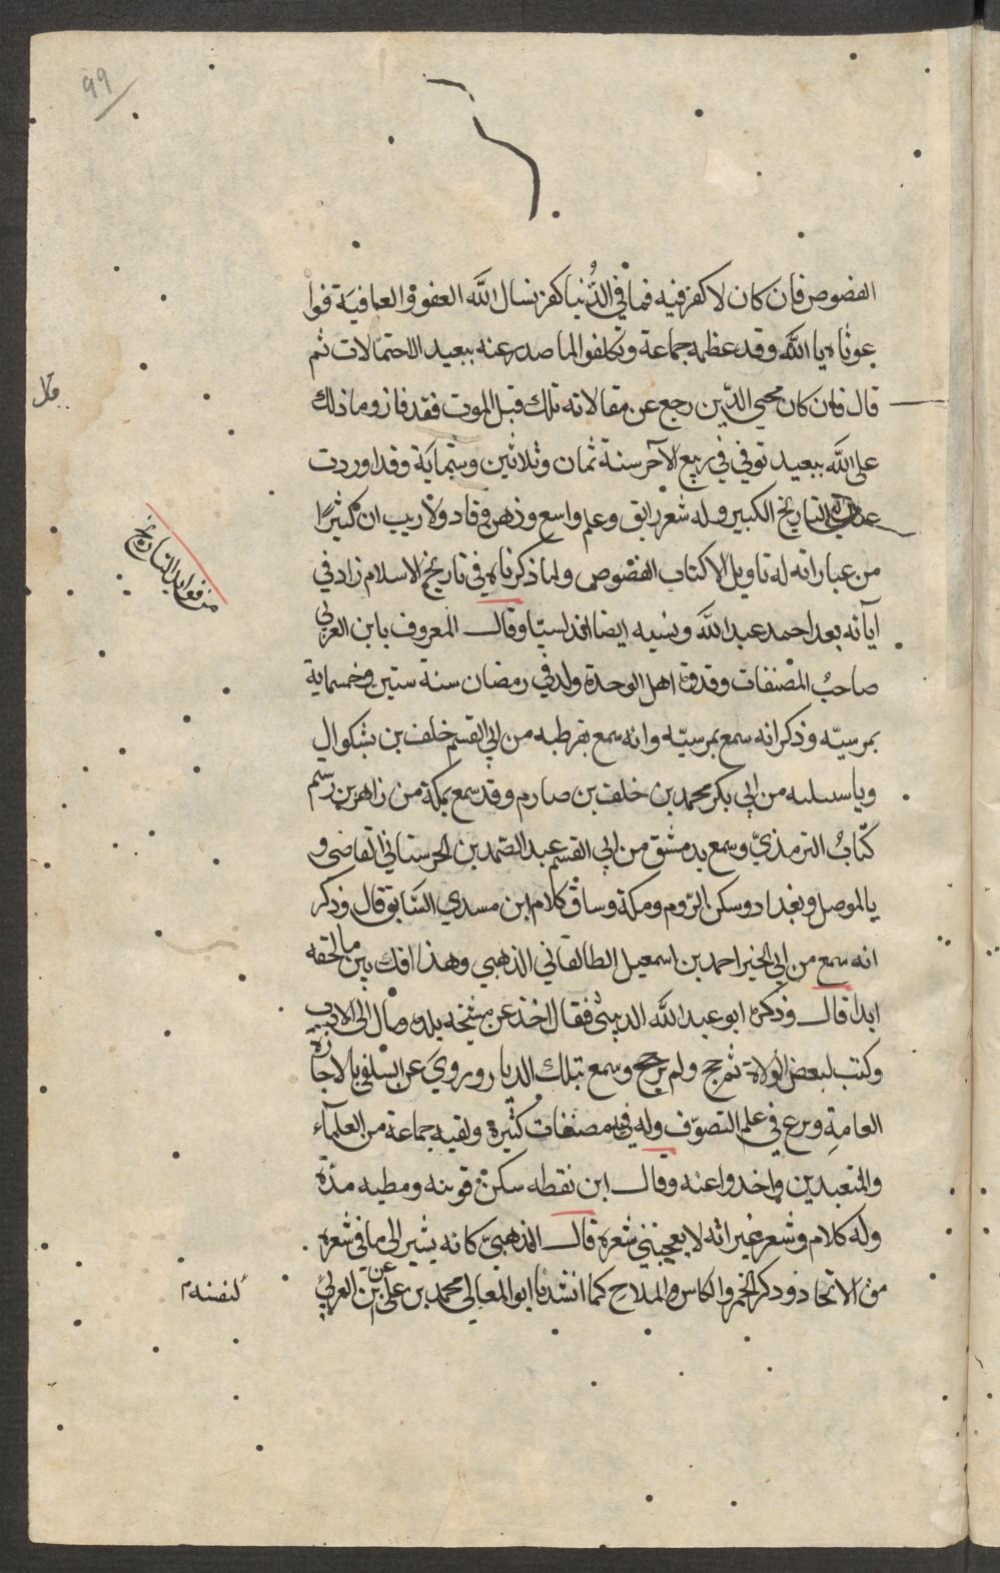 99
الفصوص فان كان لا كفر فيه فما في الدُّنيا كفر نسال اللَّه العفو والعافية فوا
غوثاه يا اللَّه وقد عظمه جماعة وتكلفوا لما صدر عنه ببعيد الاحتمالات ثم
قال فان كان محيي الدّين رجع عن مقالاته تلك قبل الموت فقد فاز وما ذلك
قال
على اللَّه ببعيد توفي في ربيع الآخر سنة ثمان وثلاثين وستماية وقد اوردت
التاريخ الكبير وله شعر رايق وعلم واسع وذهن وقاد ولا ريب ان كثيرًا
من عباراته له تاويل الا كتاب الفصوص ولما ذكرناه في تاريخ الاسلام زاد في
من فوايد التاريخ
آبائه بعد احمد عبد اللَّه ونسبه ايضا اندلسيّا وقال المعروف بابن العربي
صاحبُ المصنفات وقدوة اهل الوحدة ولد في رمضان سنة ستين وخمسماية
بمرسيّه وذكر انه سمع بمرسيّه وانه سمع بقرطبه من ابي القسم خلف بن بشكوال
وباسبيليه من ابي بكر محمد بن خلف بن صارم وقد سمع بمكة من زاهر بن رستم
كتابُ الترمذيّ وسمع بدمشق من ابي القسم عبد الصّمد بن الحرستاني القاضي و
بالموصل وبغداد وسكن الرّوم ومكة وساق كلام ابن مسدي السّابق قال وذكر
انه سمع من ابي الخير احمد بن اسمعيل الطالقاني الذهبي وهذا افك بيّن ما لحقه
ابدا قال وذكره ابو عبد اللَّه الدبيثي فقال اخذ عن مشيخة بلده ومال الى الادب
وكتب لبعض الولاة ثم حج ولم يرجع وسمع بتلك الديار وروي عن السلفي بالاجازة
العامة وبرع في علم التصوّف وله فيه مصنفات كثيرة ولقيه جماعة من العلمآء
والمتعبدين واخذوا عنه وقال ابن نقطه سكن قونيه ومطيه مدّة
وله كلام وشعر غير انه لا يعجبني شعره قال الذهبيّ كانه يشير الى ما في شعره
من الاتحاد وذكر الخمر والكاس والملاح كما انشدنا ابو المعالي محمد بن علي عن ابن العربي
لنفسه م